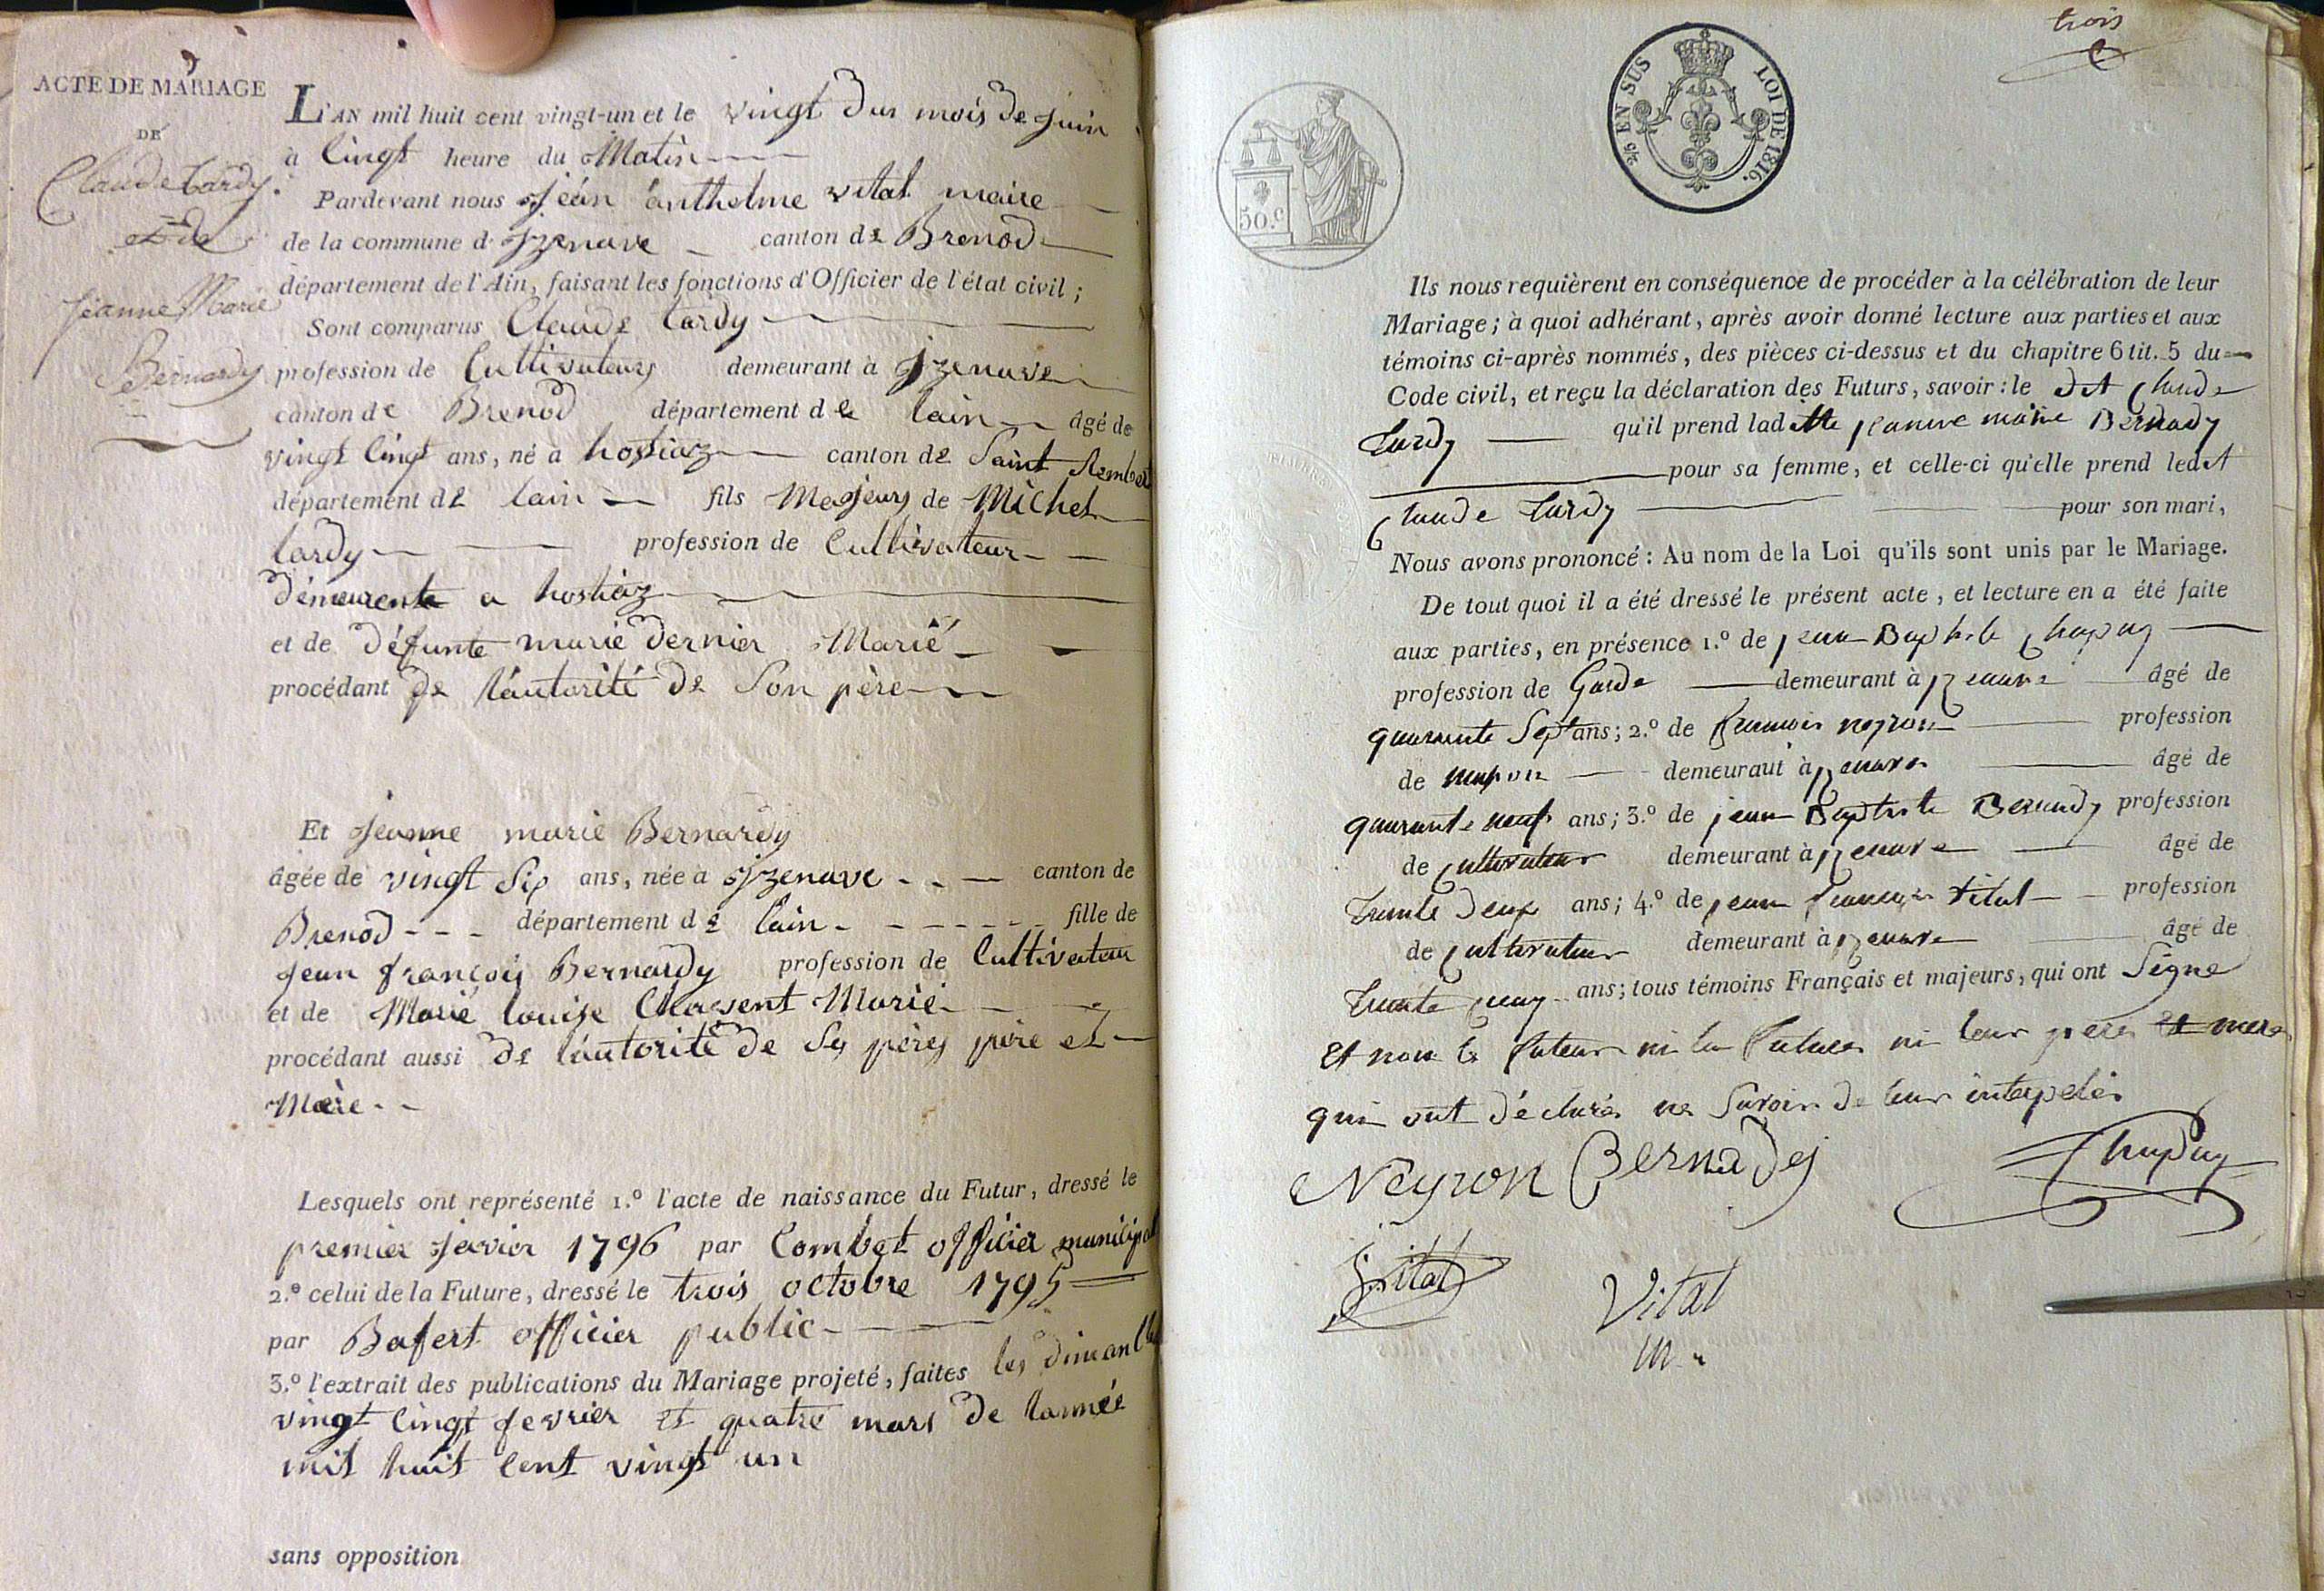 ACTE DE MARIAGE
DE
Claude tardy
et de
jéanne Marie
Bernardy
L'AN mil huit cent vingt-un et le vingt dus mois de juin
à Cingt heure du Matin
Pardevant nous jéan anthelme vital maire
de la commune d jzenave canton de Brenod
département de l'Ain, faisant les fonctions d'Officier de l'état civil;
Sont comparus Claude tardy
profession de Cultivateurs demeurant à jzenave
canton de Brenod département de lain âgé de
vingt Cingt ans, né à hostiaz canton de Saint Rembert
département de lain fils Majeurs de Michel
tardy profession de Cultivateur
démeurente a hostiaz
et de défunte marie dernier Marié
procédant de lautorité de Son père
Et jeanne marie Bernardy
âgée de vingt Six ans, née à jzenave canton de
Brenod département de lain fille de
jean françois Bernardy profession de Cultivateur
et de Marie louise Marié
procédant aussi de lautorité de Ses pères père et
Mère
Lesquels ont représenté 1.º l'acte de naissance du Futur, dressé le
premier javier 1796 par Combet officier municipal
2.º celui de la Future, dressé le trois octobre 1795
par Bafert officier public
3.º l'extrait des publications du Mariage projeté, faites les dimanche
vingt Cingt fevrier et quatre mars de lannée
mil huit Cent vingt un
sans opposition
trois
2/5 EN SUS LOI DE 1816.
50.c
Ils nous requièrent en conséquence de procéder à la célébration de leur
Mariage; à quoi adhérant, après avoir donné lecture aux parties et aux
témoins ci-après nommés, des pièces ci-dessus et du chapitre 6 tit. 5 du
Code civil, et reçu la déclaration des Futurs, savoir: le dit Claude
tardy qu'il prend ladette jeanne marie Bernady
pour sa femme, et celle-ci qu'elle prend ledit
Claude tardy pour son mari,
Nous avons prononcé: Au nom de la Loi qu'ils sont unis par le Mariage.
De tout quoi il a été dressé le présent acte, et lecture en a été faite
aux parties, en présence 1.º de jean Baptiste Chapuy
profession de Garde demeurant à jzenave âgé de
quarante Sept ans; 2.º de francois neyron profession
de demeurant à jzenave âgé de
quarante neuf ans; 3.º de jean Baptiste Bernady profession
de Cultivateur demeurant à jzenave âgé de
trente deux ans; 4.º de jean francois vital profession
de Cultivateur demeurant à jzenave âgé de
trente ans; tous témoins Français et majeurs, qui ont Signe
Et non le futeur ni la future ni leur peres et mere
qui ont déclarés ne Savoir de leur interpelés
Neyron Bernady Chapuy
Vital Vital
m.r